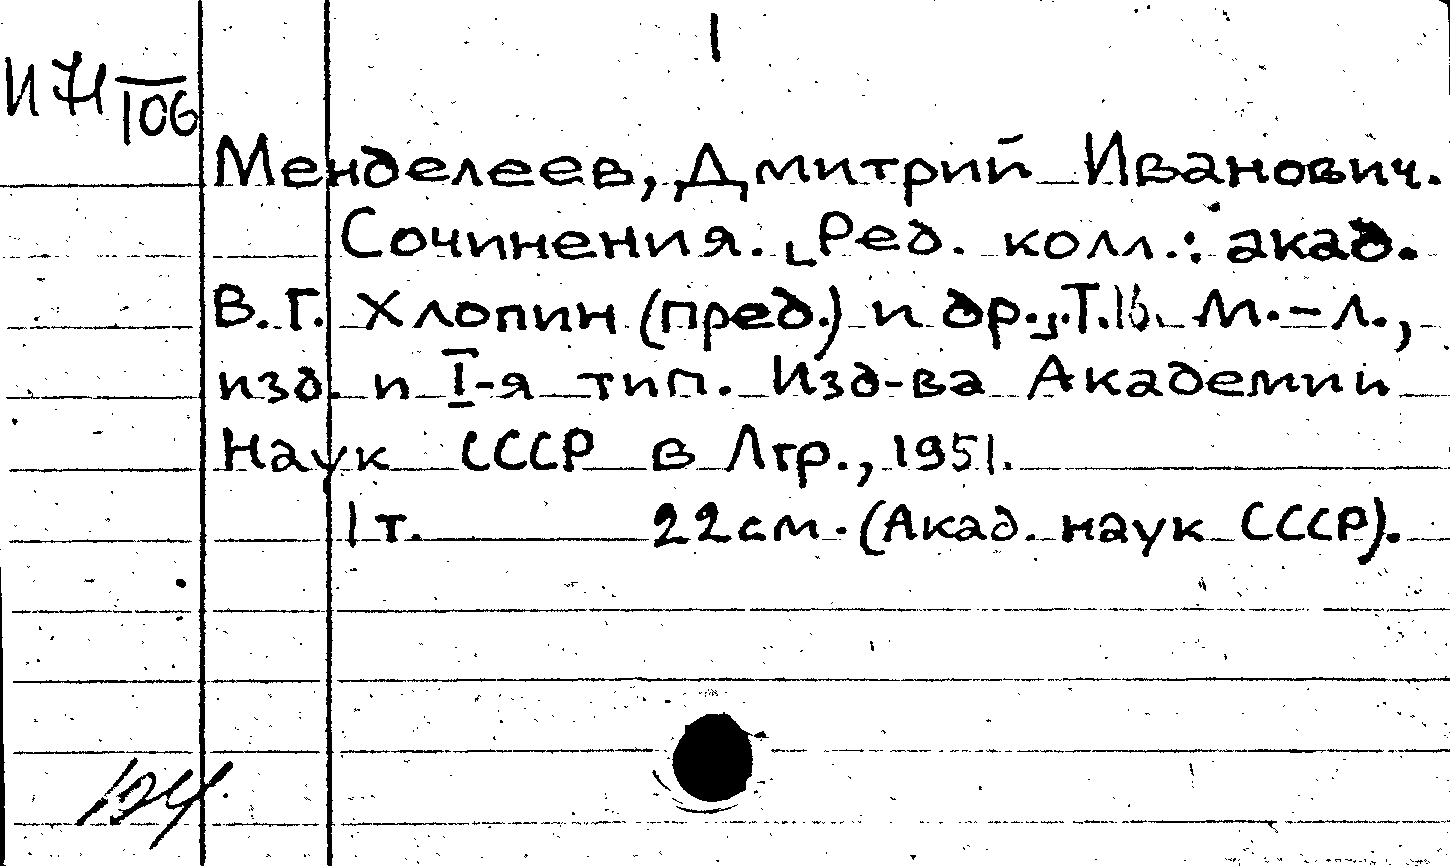 1
И 7Н/106
Менделеев, Дмитрий Иванович.
Сочинения. [Ред. колл.: акад.
В.Г. Хлопин (пред.) и др.]. Т.16. М.-Л.,
изд. и I-я тип. Изд-ва Академии
Наук СССР в Лгр., 1951.
1 т. 22 см. (Акад. наук СССР).